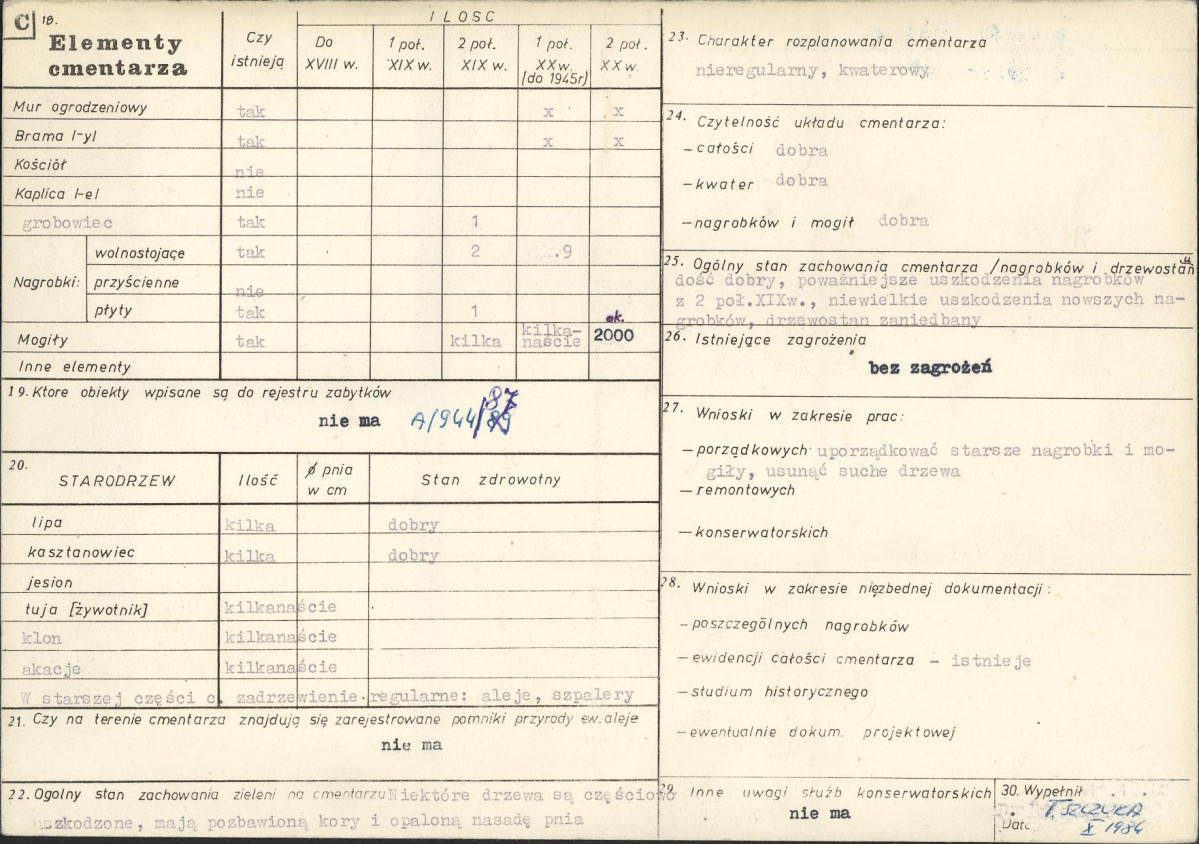 C 18.
Elementy cmentarza
Czy istnieją
ILOSC
Do XVIII w.
1 poł. XIX w.
2 poł. XIX w.
1 poł. XX w. (do 1945r)
2 poł. XX w.
Mur ogrodzeniowy tak x x
Brama l-yl tak x x
Kościół nie
Kaplica l-el nie
grobowiec tak 1
Nagrobki:
wolnostojące tak 2 .9
przyścienne nie
płyty tak 1
Mogiły tak kilka kilka-naście ok. 2000
Inne elementy
19. Ktore obiekty wpisane są do rejestru zabytków
nie ma A/944/87
20.
STARODRZEW Ilość ø pnia w cm Stan zdrowotny
lipa kilka dobry
kasztanowiec kilka dobry
jesion
tuja [żywotnik] kilkanaście
klon kilkanaście
akacje kilkanaście
W starszej części c. zadrzewienie regularne: aleje, szpalery
21. Czy na terenie cmentarza znajdują się zarejestrowane pomniki przyrody ew. aleje
nie ma
22. Ogolny stan zachowania zieleni na cmentarzu Niektóre drzewa są częściowo
uszkodzone, mają pozbawioną kory i opaloną nasadę pnia
23. Charakter rozplanowania cmentarza
nieregularny, kwaterowy
24. Czytelność układu cmentarza:
- całości dobra
- kwater dobra
- nagrobków i mogił dobra
25. Ogólny stan zachowania cmentarza /nagrobków i drzewostanu
dość dobry, poważniejsze uszkodzenia nagrobków
z 2 poł.XIXw., niewielkie uszkodzenia nowszych na-
grobków, drzewostan zaniedbany
26. Istniejące zagrożenia
bez zagrożeń
27. Wnioski w zakresie prac:
- porządkowych uporządkować starsze nagrobki i mo-
giły, usunąć suche drzewa
- remontowych
- konserwatorskich
28. Wnioski w zakresie niezbednej dokumentacji:
- poszczególnych nagrobków
- ewidencji całości cmentarza - istnieje
- studium historycznego
- ewentualnie dokum. projektowej
29. Inne uwagi służb konserwatorskich
nie ma
30. Wypełnił
T. SZCZUKA
Data X 1984